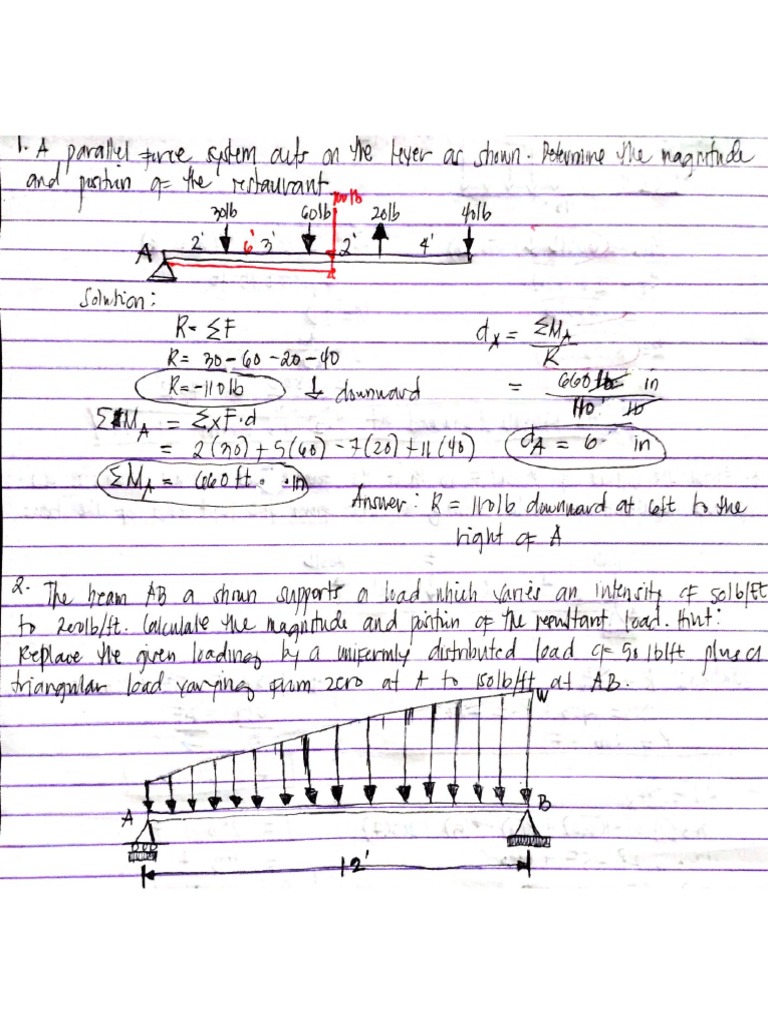 1. A parallel force system acts on the lever as shown. Determine the magnitude
and position of the restaurant
30lb 60lb 20lb 40lb
A 2' 6' 3' 2' 4'
Solution:
R = ΣF
R = 30-60-20-40
R = -110lb ↓ downward
ΣMA = ΣxF·d
= 2(30)+5(60)-7(20)+11(40)
ΣMA = 660ft. .in
dx = ΣMA / R
= 660 lb in / 110 lb
dA = 6 in
Answer: R = 110lb downward at 6ft to the
right of A
2. The beam AB a shown supports a load which varies an intensity of 50lb/ft
to 200lb/ft. Calculate the magnitude and position of the resultant load. Hint:
Replace the given loadings by a uniformly distributed load of 50 lb/ft plus a
triangular load varying from zero at A to 150lb/ft at AB.
W
A B
12'